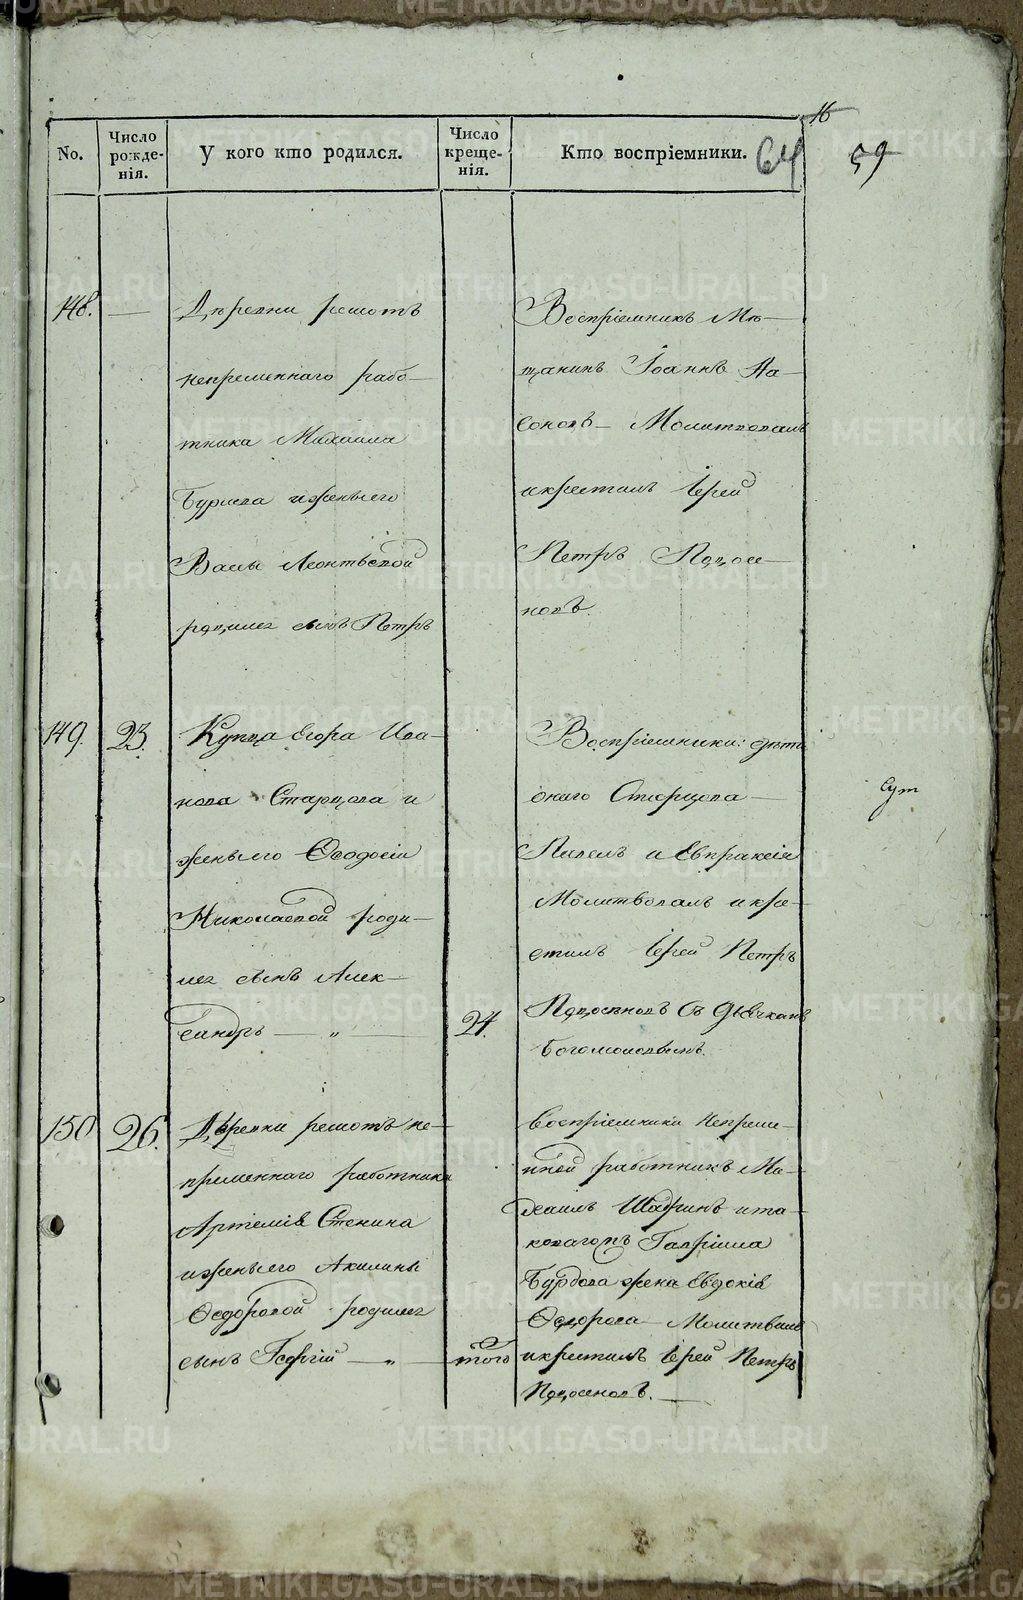 16
59
64
No.
Число рожде-нія.
У кого кто родился.
Число креще-нія.
Кто воспріемники.
148.
Деревни решотъ
непременнаго рабо-
тника Михаила
Бурцева и жены его
Леонтьевой
родился сынъ Петръ
Воспріемникъ Ме-
щанинъ Іоаннъ На-
соновъ - Молитвовалъ
и крестилъ Іерей
Петръ
новъ.
149.
23.
Купца Егора Ива-
нова Старцова и
жены его Ѳеодосіи
Николаевой роди-
лся сынъ Алек-
сандръ — „ —
24.
Воспріемники: дети
онаго Старцова
Павелъ и Евпраксія
Молитвовалъ и кре-
стилъ Іерей Петръ
Съ Дьячкомъ
Богомоловымъ.
150
26.
Деревни решотъ не-
пременнаго работника
Артемія Стенина
и жены его Акилины
Ѳедоровой родился
сынъ Георгій — „
того
Воспріемники Непреме-
нной работникъ Ми-
хаилъ и та-
коваго жъ Гавріила
жена Евдокія
Ѳедорова Молитвилъ
и крестилъ Іерей Петръ
METRIKI.GASO-URAL.RU